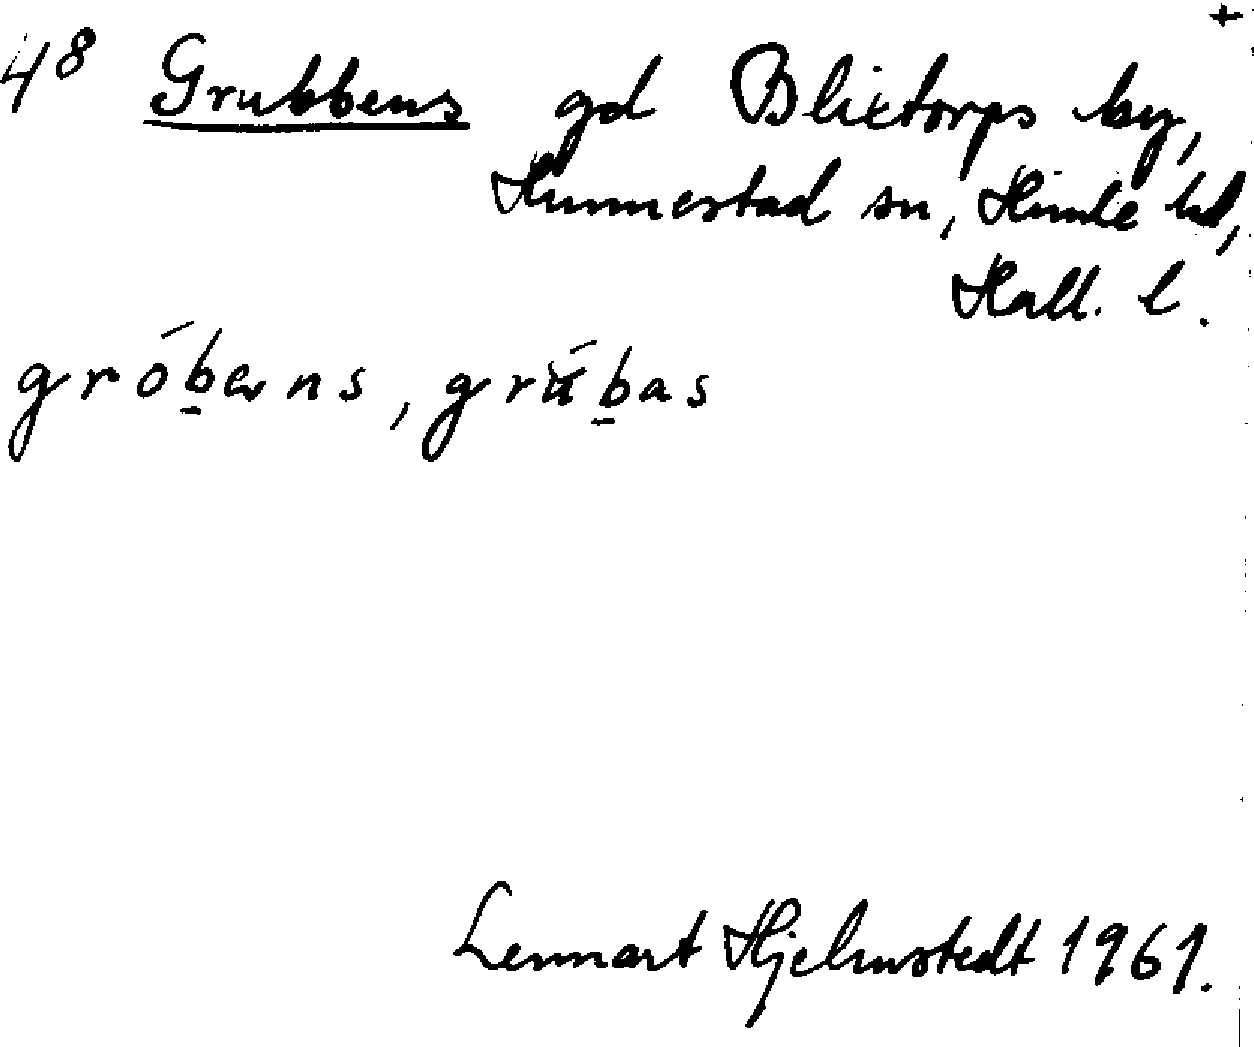 +
48 Grubbens gd Blixtorps by,
Hunnestad sn, Himle hd,
Hall. l.
Lennart Hjelmstedt 1961.